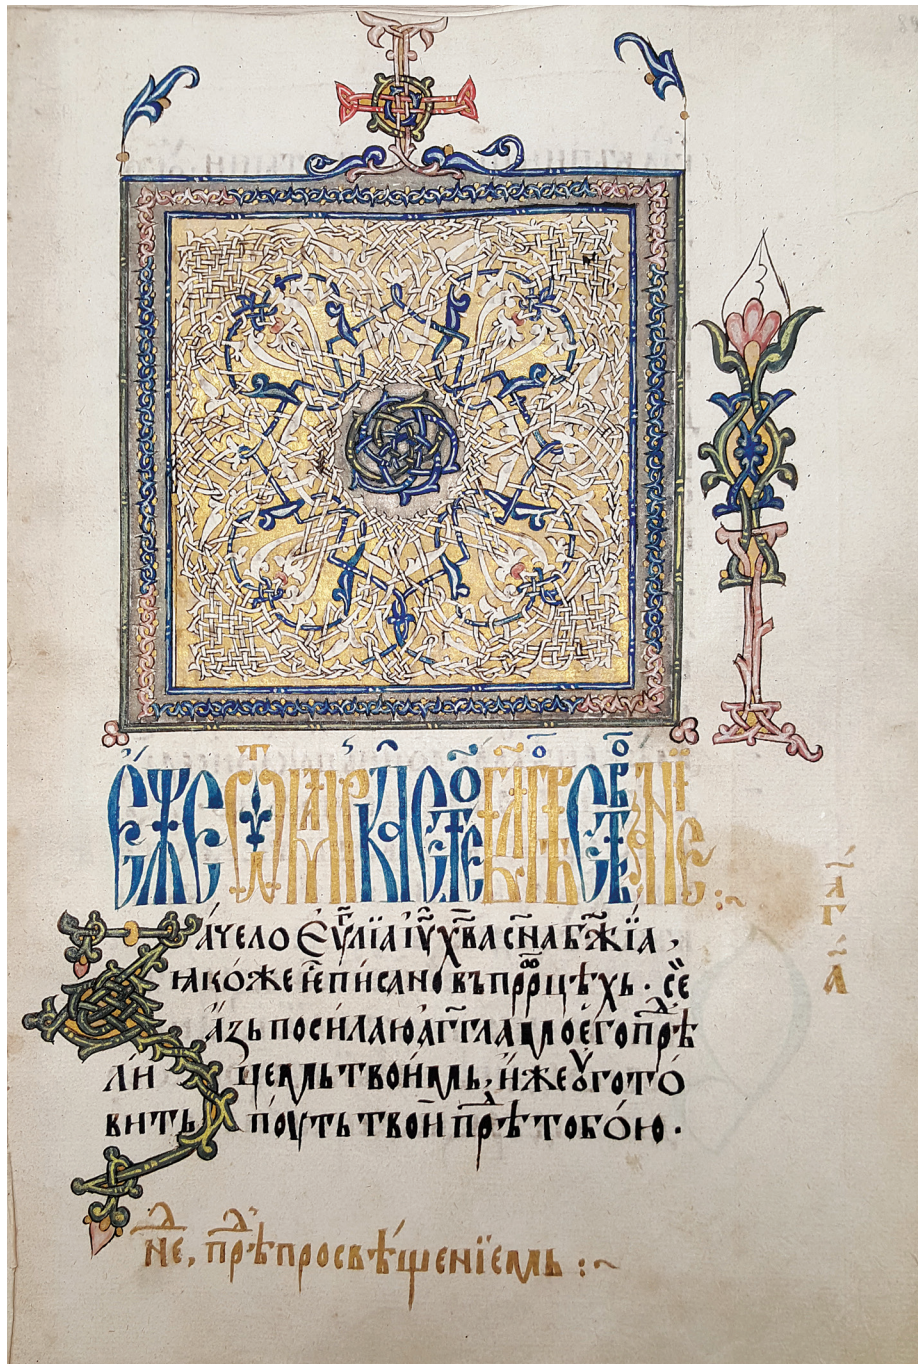 Є́же ѿ ма́рка ст҃ое бл҃говѣствова́нїе :~
За́чело Є҆ѵⷢ҇лїа і҆ѵ҃ хв҃а сн҃а бж҃їа ,
ꙗко́же є҆́ писано въ прⷪ҇рцѣхь · се҆
а́зь посила́ю а҆гг҃ла мое҆го̀ прⷣѣ
ли цемь твои́мь , и҆́же оу҆гото́
вить поу́ть твои̏ прⷣѣ тобо́ю ·
нⷣе , прⷣѣ просвѣще́нїемь :~
а҃
г
а҃